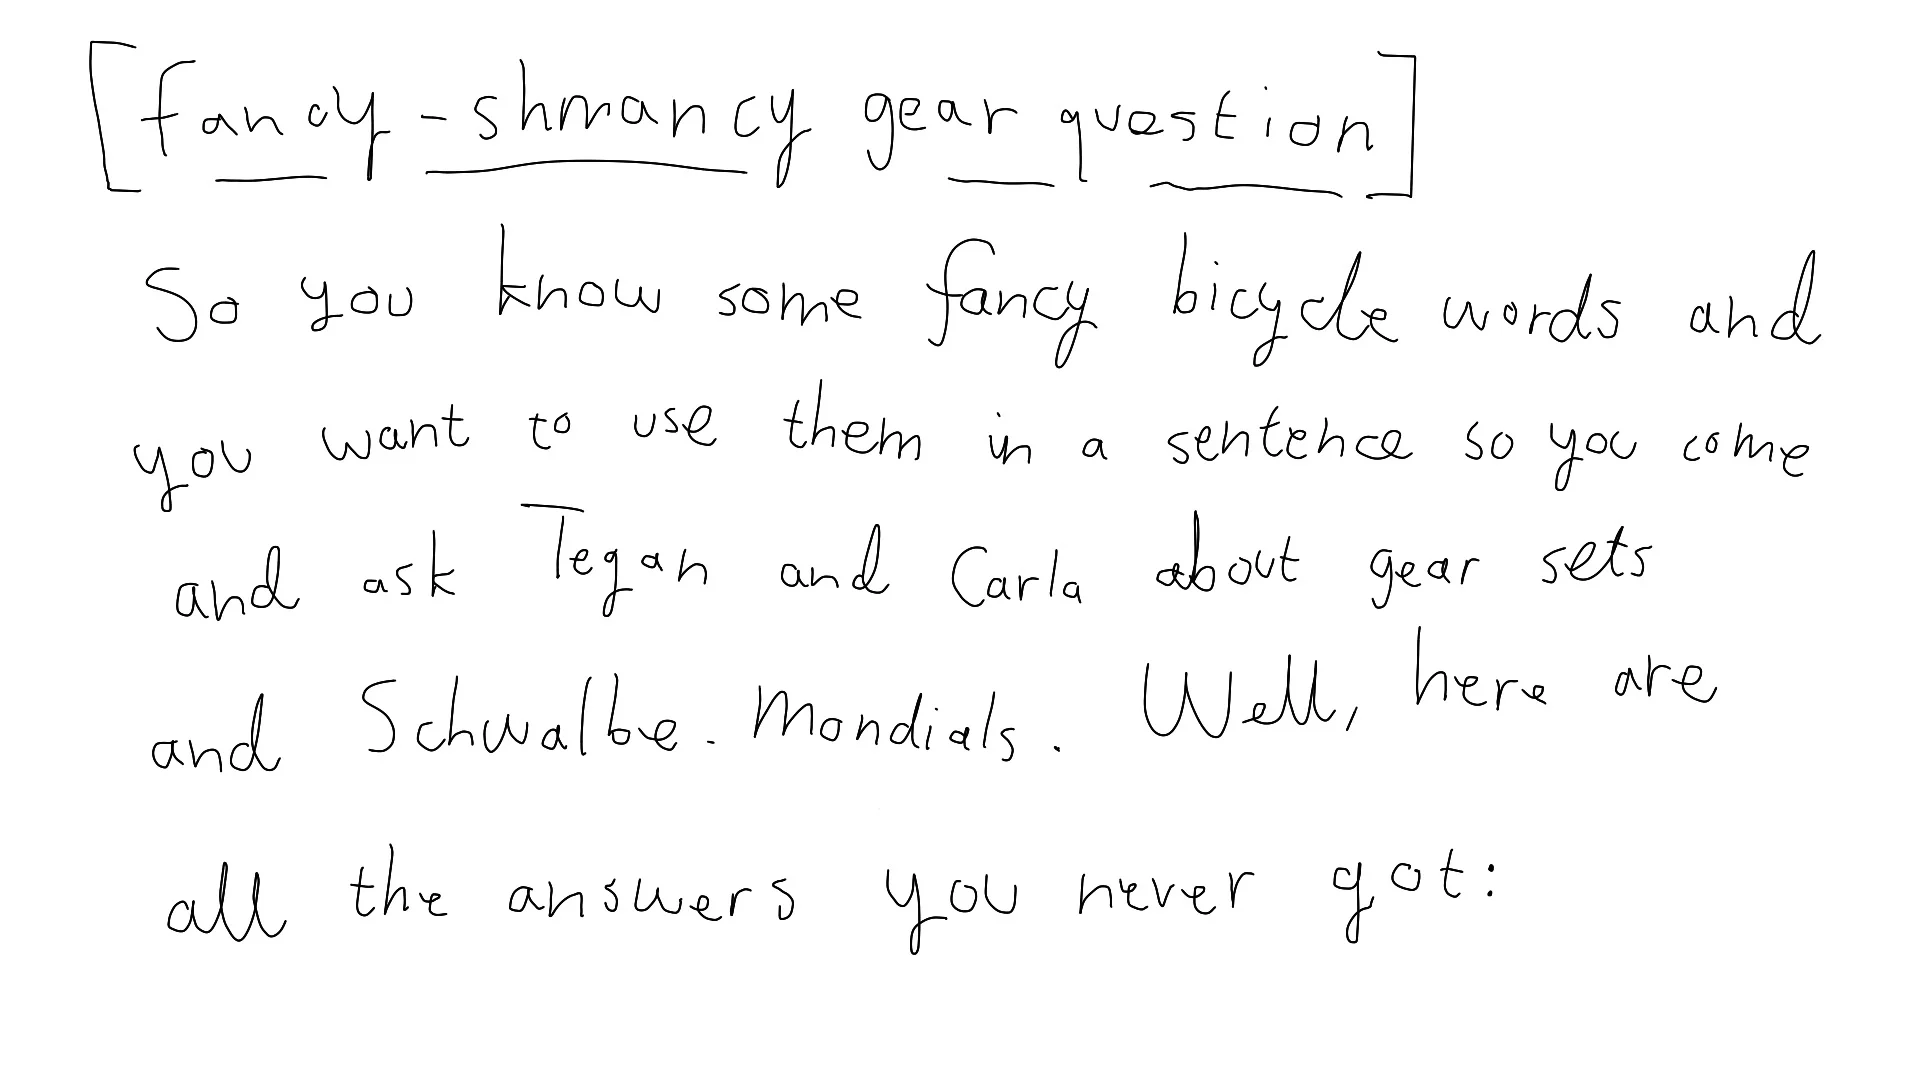 [fancy-shmancy gear question]
So you know some fancy bicycle words and
you want to use them in a sentence so you come
and ask Tegan and Carla about gear sets
and Schwalbe-Mondials. Well, here are
all the answers you never got: